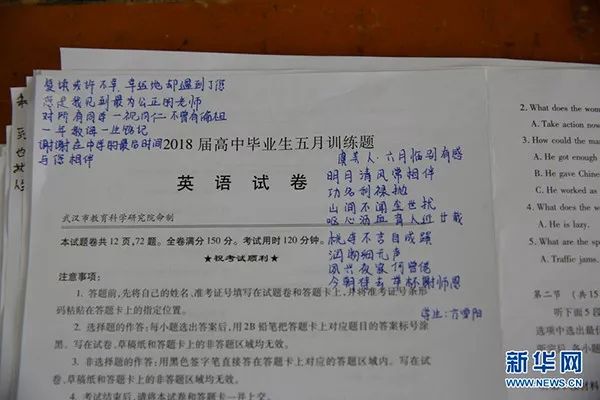 复读或许不幸,幸运地却遇到了您
您是我见到最为公正的老师
对所有同学一视同仁不曾有偏袒
一年教诲一生铭记
谢谢在中学的最后时间
与您相伴
2018届高中毕业生五月训练题
英语试卷
武汉市教育科学研究院命制
本试题卷共12页,72题。全卷满分150分。考试用时120分钟。
★祝考试顺利★
注意事项:
1. 答题前,先将自己的姓名、准考证号填写在试题卷和答题卡上,并将准考证号条形
码粘贴在答题卡上的指定位置。
2. 选择题的作答:每小题选出答案后,用2B铅笔把答题卡上对应题目的答案标号涂
黑。写在试卷、草稿纸和答题卡上的非答题区域均无效。
3. 非选择题的作答:用黑色签字笔直接答在答题卡上对应的答题区域内。写在试
卷、草稿纸和答题卡上的非答题区域均无效。
4. 考试结束后,请将本试卷和答题卡一并上交。
虞美人·六月临别有感
明月清风常相伴
功名利禄抛
山涧不闻尘世扰
呕心沥血育人近廿载
桃李不言自成蹊
润物细无声
夙兴夜寐何曾倦
今朝 去 草杯谢师恩
学生:方雪阳
2. What does the wom
A. Take action now
3. How could the ma
A. He got enough
B. He gave Chines
C. He worked as
4. What does the w
A. He is lazy.
5. What are the sp
A. Traffic jams.
第二节 (共15
听下面5段
选项中选出最佳
新华网
WWW.NEWS.CN